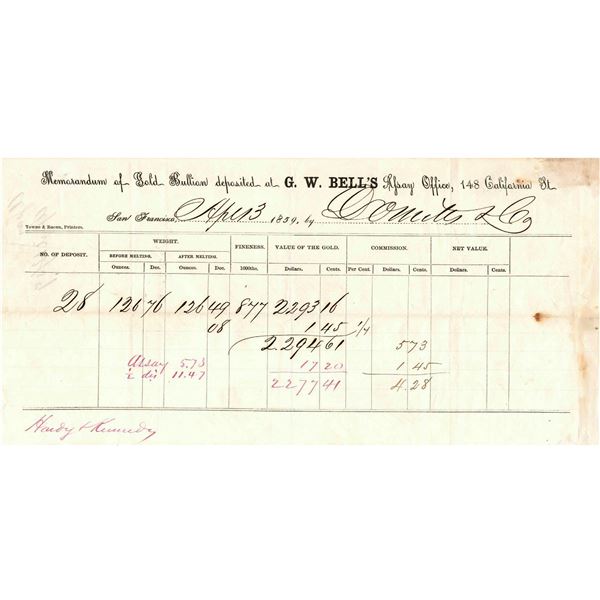 Memorandum of Gold Bullion deposited at G. W. BELL'S Assay Office, 148 California St.
San Francisco, Apr 13 1859. by D O Mills & Co
Towne & Bacon, Printers.
NO. OF DEPOSIT. WEIGHT. FINENESS. VALUE OF THE GOLD. COMMISSION. NET VALUE.
BEFORE MELTING. AFTER MELTING.
Ounces. Dec. Ounces. Dec. 1000ths. Dollars. Cents. Per Cent. Dollars. Cents. Dollars. Cents.
28 126 76 126 49 877 2293 16
08 1 45 1/4
2294 61 5 73
Assay 5.73 17 20 1 45
11.47 2277 41 4 28
Hardy & Kennedy